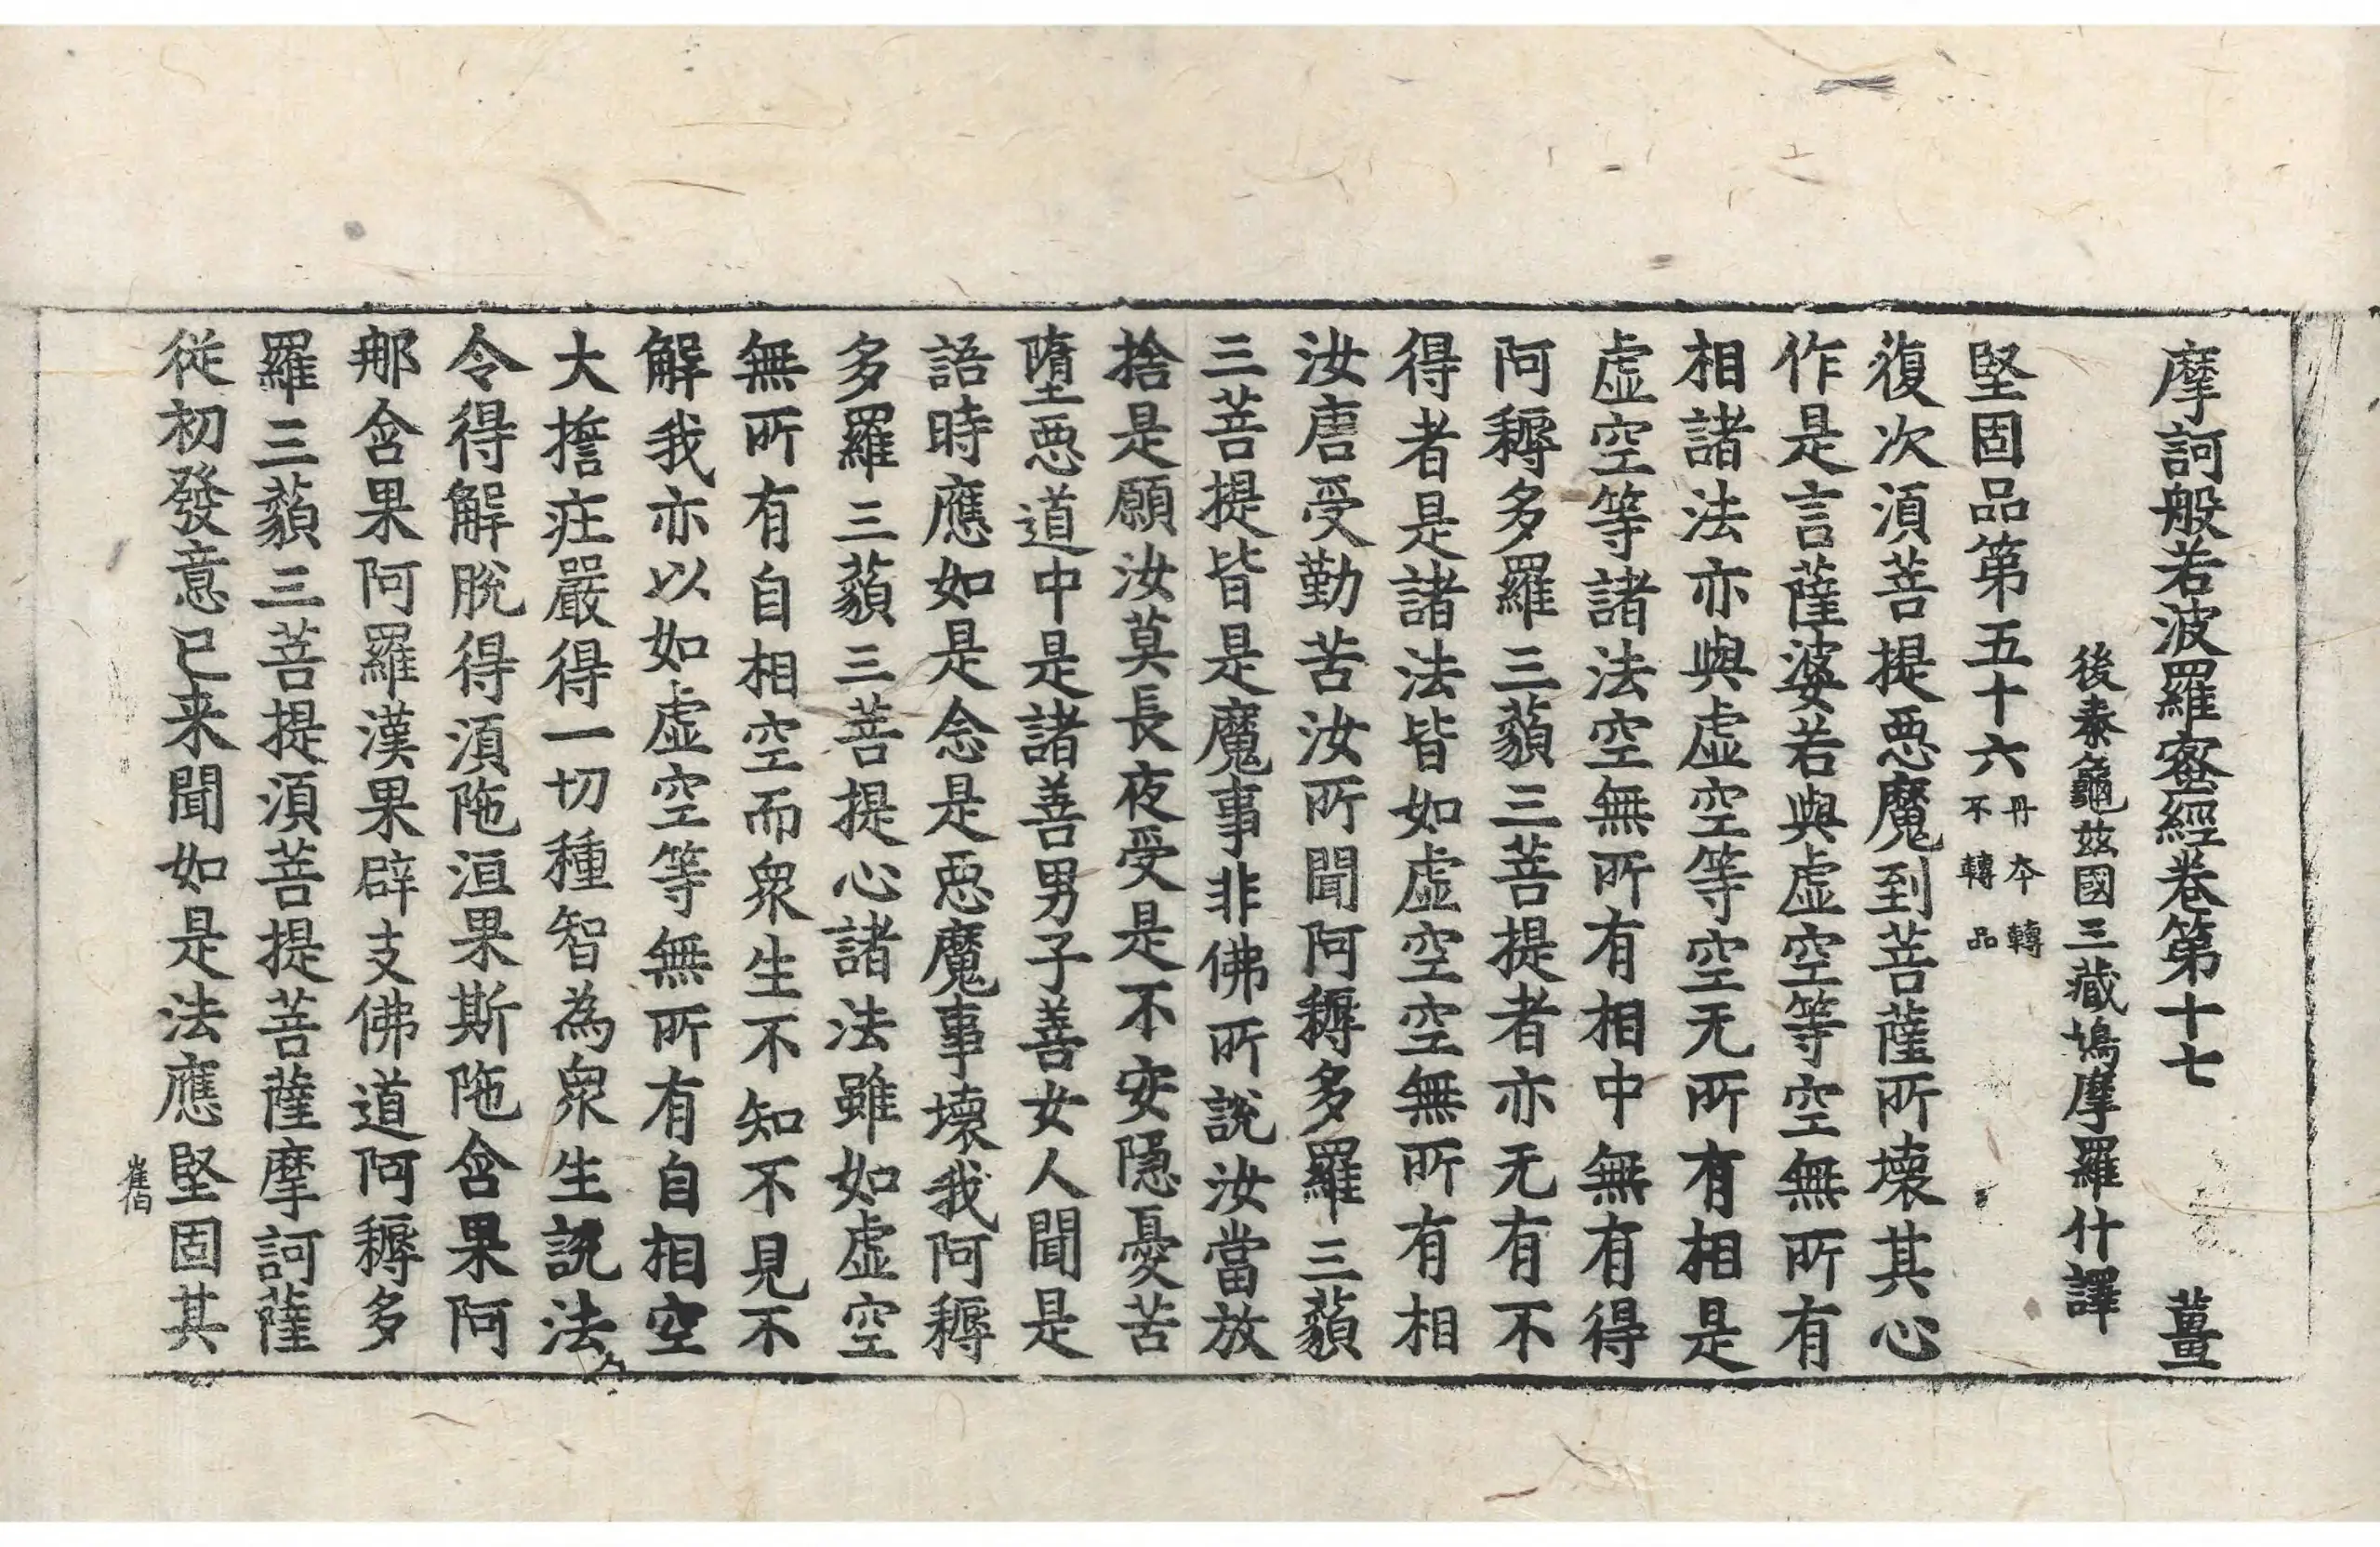 摩訶般若波羅蜜經卷第十七 薑
後秦龜玆國三藏鳩摩羅什譯
堅固品第五十六 丹本轉不轉品
復次湏菩提惡魔到菩薩所壞其心
作是言薩婆若與虛空等空無所有
相諸法亦與虛空等空无所有相是
虛空等諸法空無所有相中無有得
阿耨多羅三藐三菩提者亦无有不
得者是諸法皆如虛空空無所有相
汝唐受勤苦汝所聞阿耨多羅三藐
三菩提皆是魔事非佛所說汝當放
捨是願汝莫長夜受是不安隱憂苦
墮惡道中是諸善男子善女人聞是
語時應如是念是惡魔事壞我阿耨
多羅三藐三菩提心諸法雖如虛空
無所有自相空而衆生不知不見不
解我亦以如虛空等無所有自相空
大擔庄嚴得一切種智為衆生說法
令得解脫得湏陁洹果斯陁含果阿
那含果阿羅漢果辟支佛道阿耨多
羅三藐三菩提湏菩提菩薩摩訶薩
從初發意已来聞如是法應堅固其